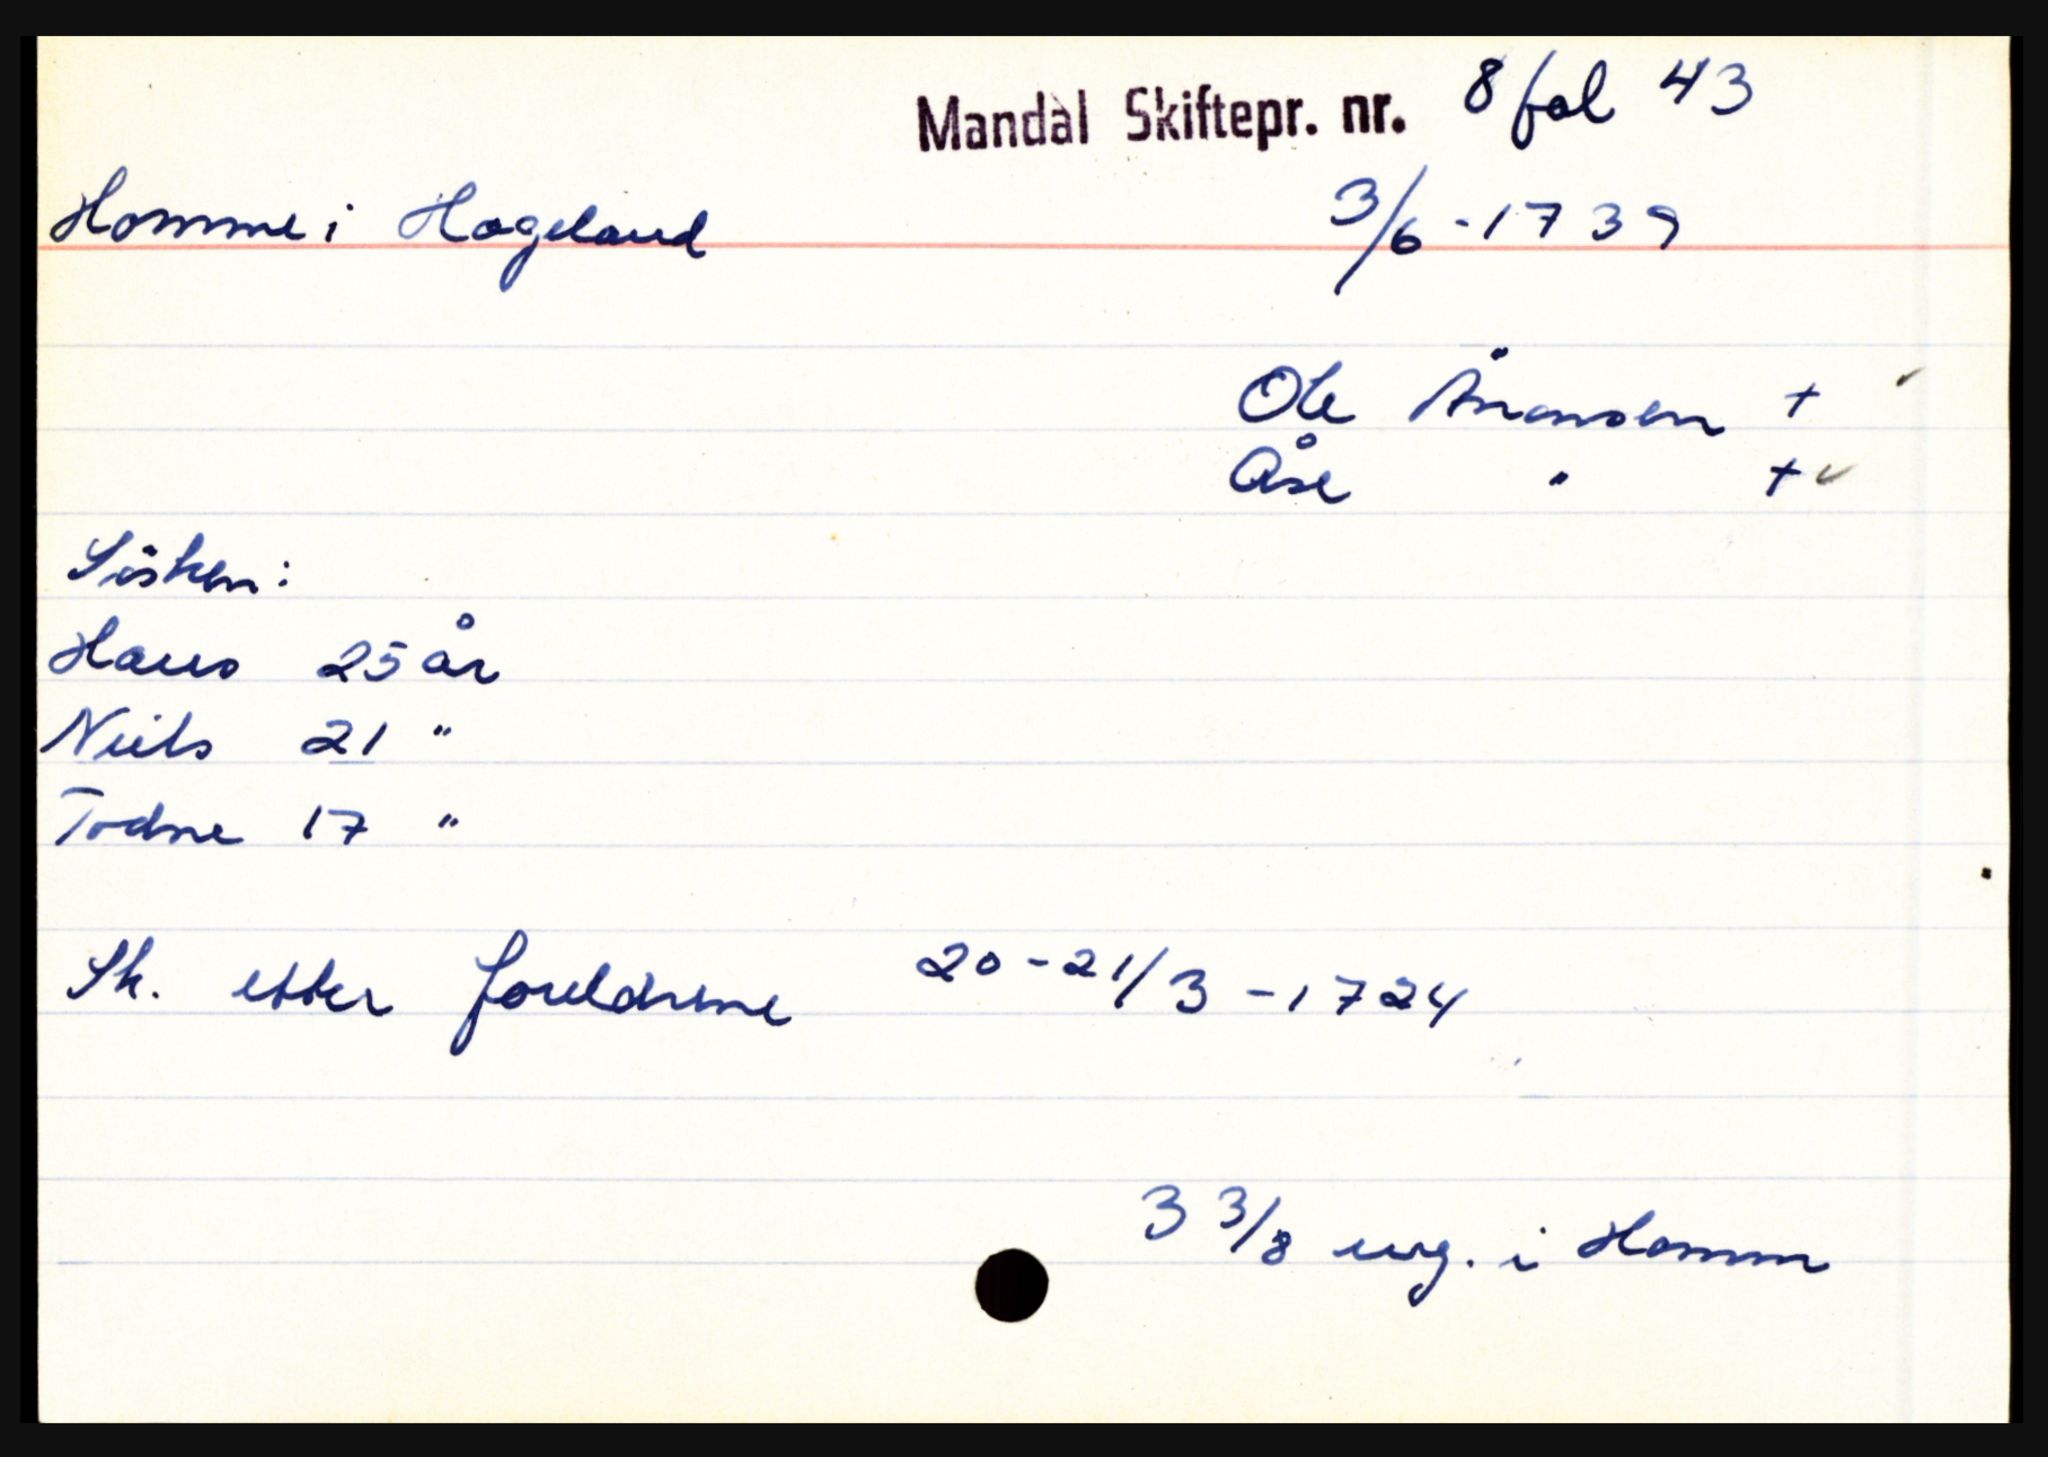 Mandal Skiftepr. nr. 8 fol 43
Homme i Hægeland 3/6 - 1739
Ole Ånonsen +
Åse " +
Sösken:
Hans 25 år
Niels 21 "
Todne 17 "
Sk. etter foreldrene 20-21/3 - 1724
3 3/8 eng. i Homm